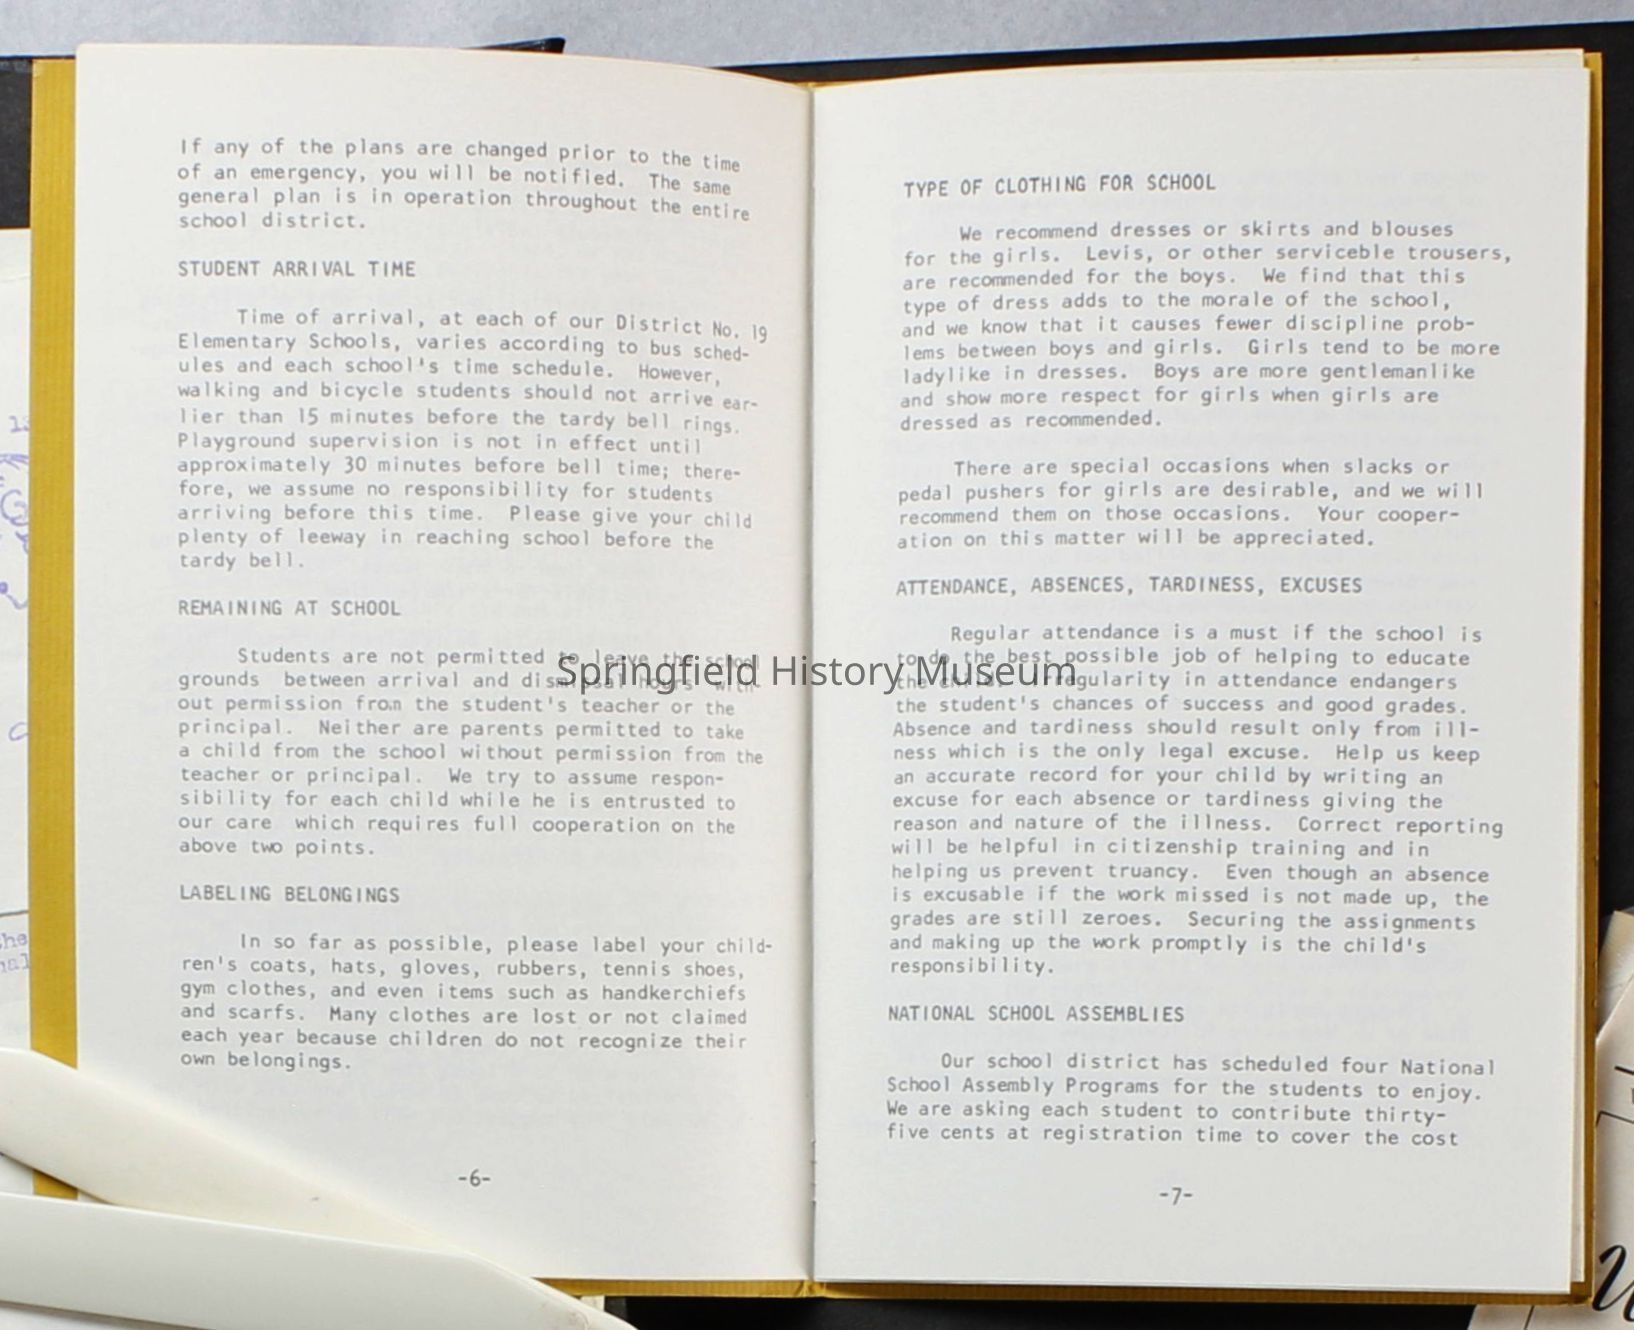 If any of the plans are changed prior to the time
of an emergency, you will be notified. The same
general plan is in operation throughout the entire
school district.
STUDENT ARRIVAL TIME
Time of arrival, at each of our District No. 19
Elementary Schools, varies according to bus sched-
ules and each school's time schedule. However,
walking and bicycle students should not arrive ear-
lier than 15 minutes before the tardy bell rings.
Playground supervision is not in effect until
approximately 30 minutes before bell time; there-
fore, we assume no responsibility for students
arriving before this time. Please give your child
plenty of leeway in reaching school before the
tardy bell.
REMAINING AT SCHOOL
Students are not permitted to leave the school
grounds between arrival and dismissal hours with-
out permission from the student's teacher or the
principal. Neither are parents permitted to take
a child from the school without permission from the
teacher or principal. We try to assume respon-
sibility for each child while he is entrusted to
our care which requires full cooperation on the
above two points.
LABELING BELONGINGS
In so far as possible, please label your child-
ren's coats, hats, gloves, rubbers, tennis shoes,
gym clothes, and even items such as handkerchiefs
and scarfs. Many clothes are lost or not claimed
each year because children do not recognize their
own belongings.
-6-
TYPE OF CLOTHING FOR SCHOOL
We recommend dresses or skirts and blouses
for the girls. Levis, or other serviceble trousers,
are recommended for the boys. We find that this
type of dress adds to the morale of the school,
and we know that it causes fewer discipline prob-
lems between boys and girls. Girls tend to be more
ladylike in dresses. Boys are more gentlemanlike
and show more respect for girls when girls are
dressed as recommended.
There are special occasions when slacks or
pedal pushers for girls are desirable, and we will
recommend them on those occasions. Your cooper-
ation on this matter will be appreciated.
ATTENDANCE, ABSENCES, TARDINESS, EXCUSES
Regular attendance is a must if the school is
to do the best possible job of helping to educate
the child. Irregularity in attendance endangers
the student's chances of success and good grades.
Absence and tardiness should result only from ill-
ness which is the only legal excuse. Help us keep
an accurate record for your child by writing an
excuse for each absence or tardiness giving the
reason and nature of the illness. Correct reporting
will be helpful in citizenship training and in
helping us prevent truancy. Even though an absence
is excusable if the work missed is not made up, the
grades are still zeroes. Securing the assignments
and making up the work promptly is the child's
responsibility.
NATIONAL SCHOOL ASSEMBLIES
Our school district has scheduled four National
School Assembly Programs for the students to enjoy.
We are asking each student to contribute thirty-
five cents at registration time to cover the cost
-7-
Springfield History Museum